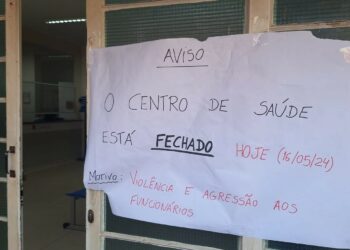 AVISO
O CENTRO DE SAÚDE
ESTÁ FECHADO HOJE (16/05/24)
Motivo: VIOLÊNCIA E AGRESSÃO AOS
FUNCIONÁRIOS